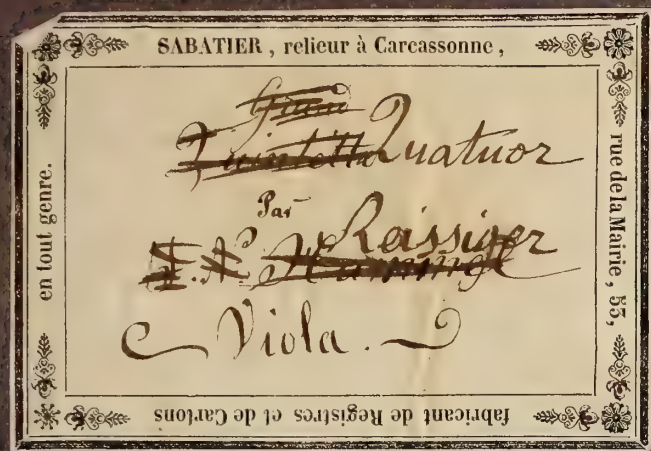 SABATIER, relieur à Carcassonne,
rue de la Mairie, 53,
fabricant de Registres et de Cartons
en tout genre.
Grand
Quintetto Quatuor
Par
Reissiger
J. N. Hummel
Viola.